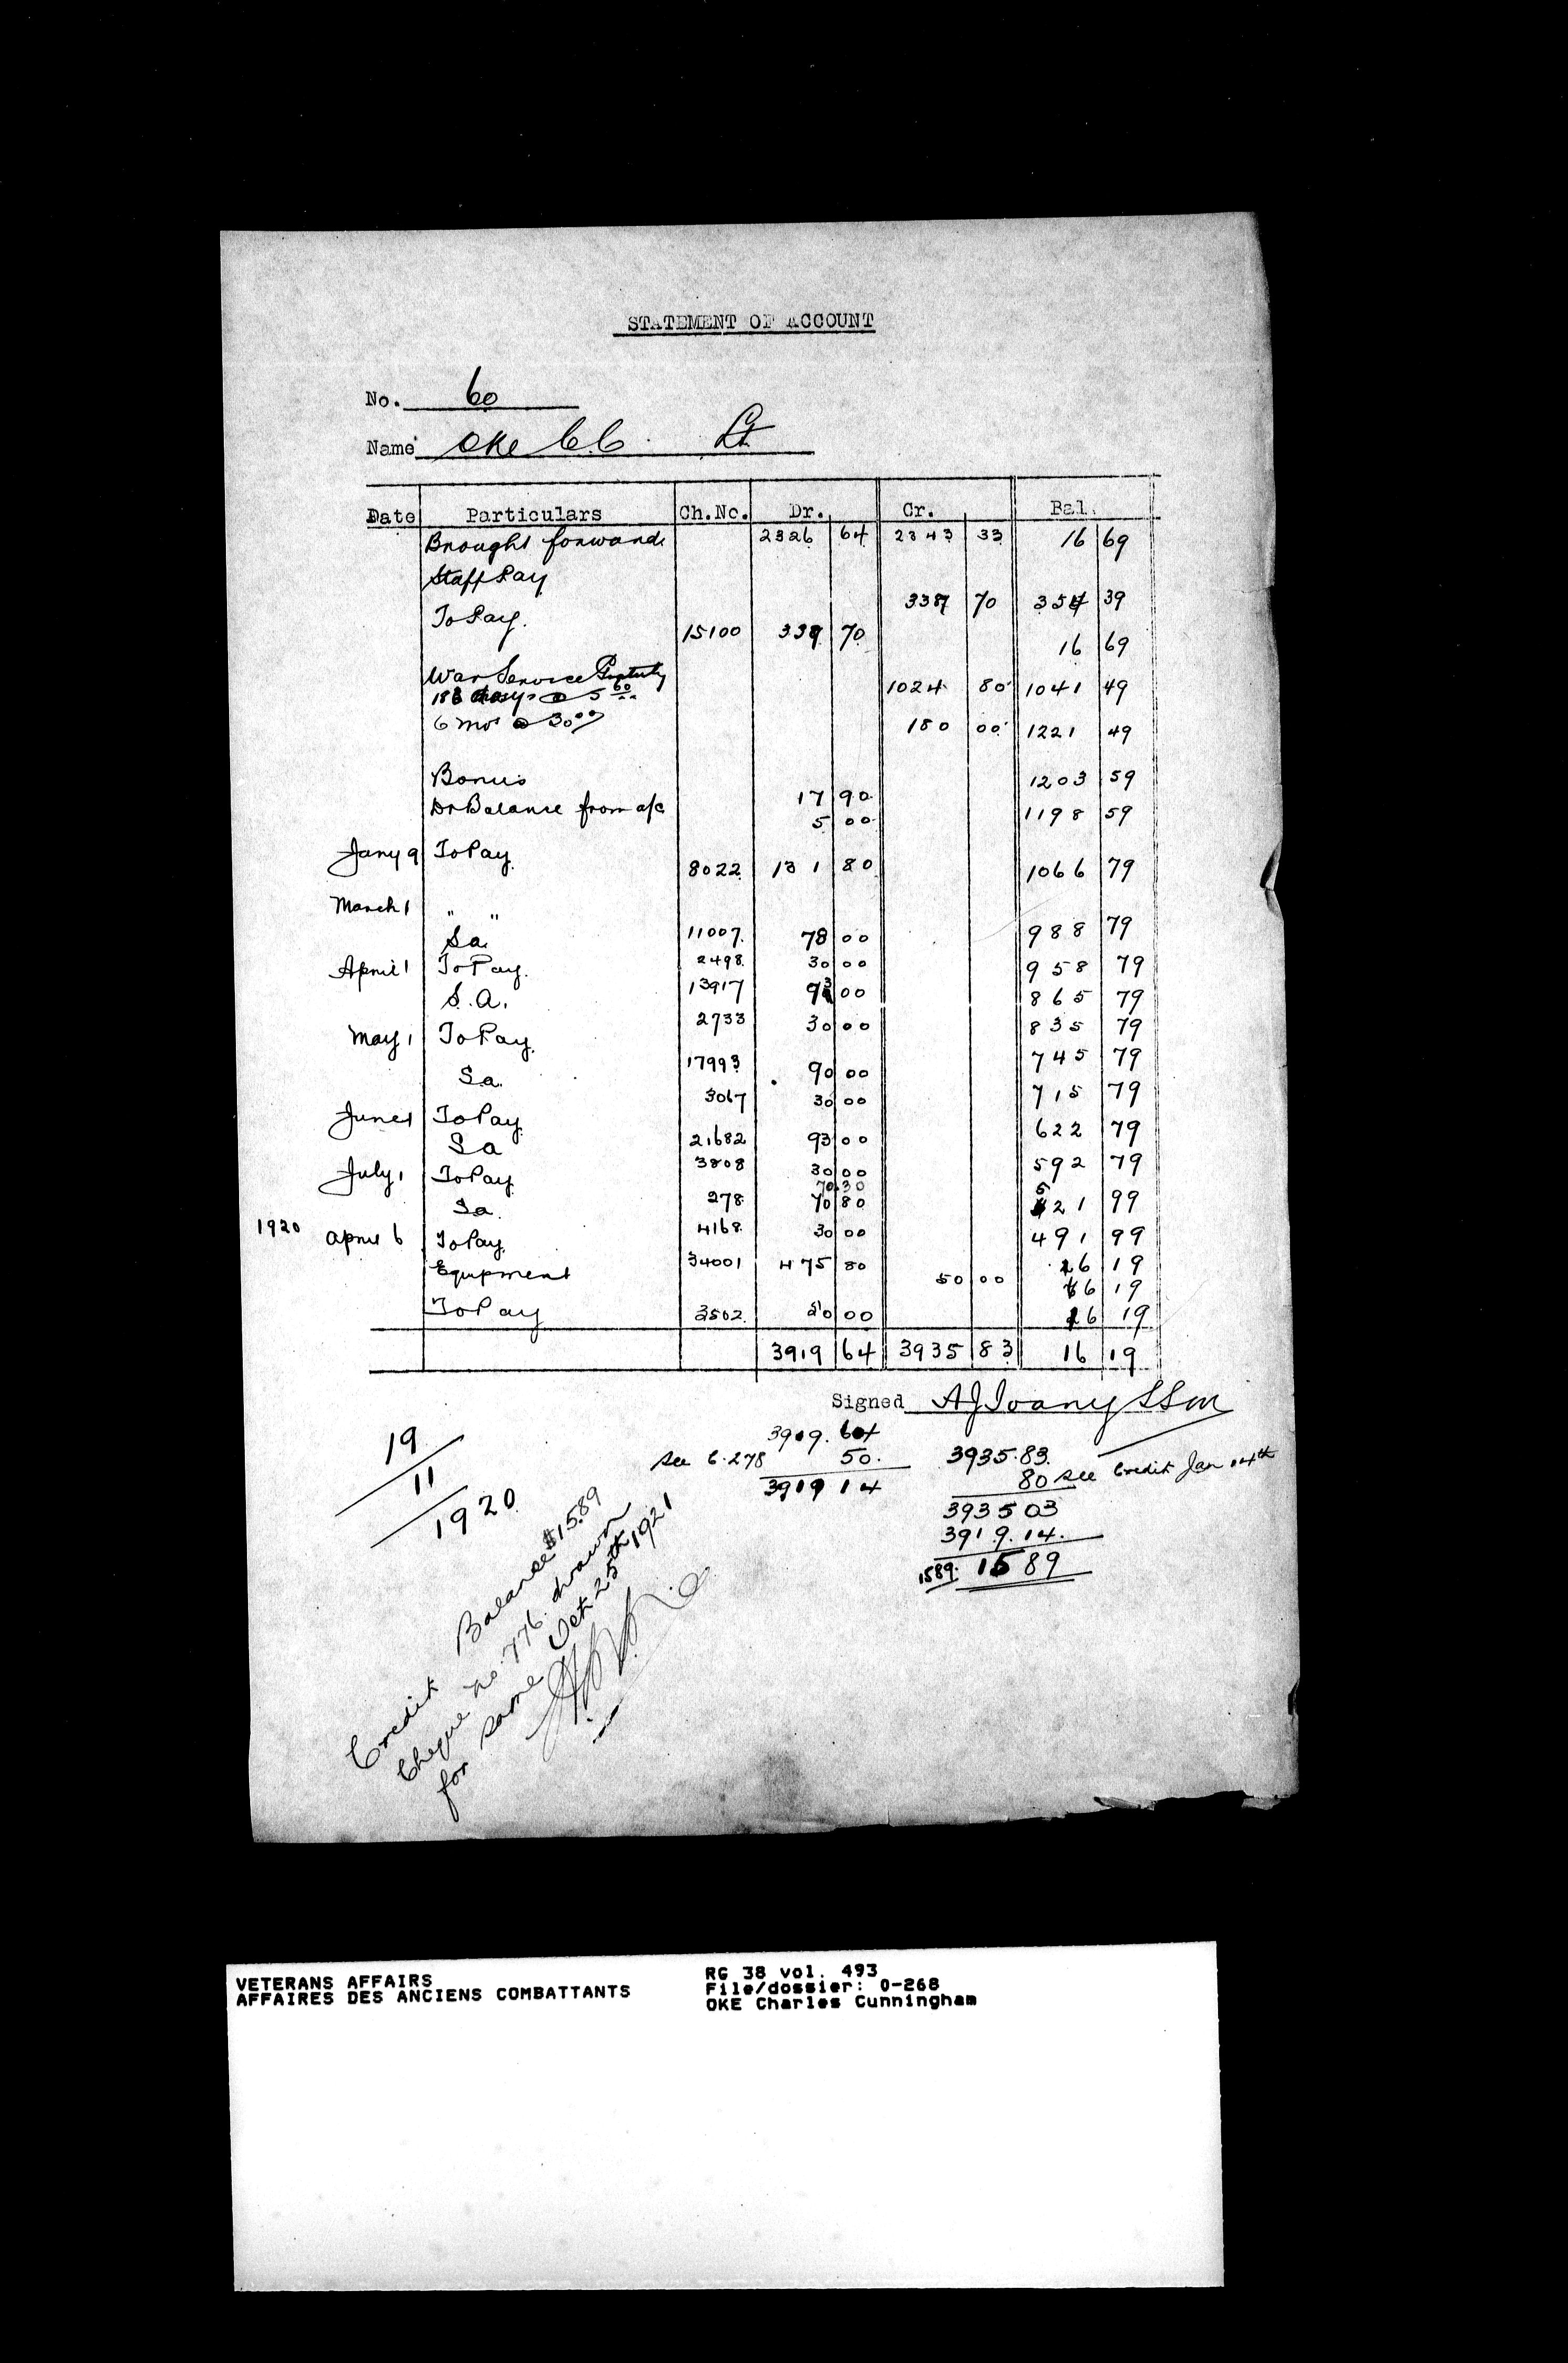 STATEMENT OF ACCOUNT
No. 60
Name Oke C.C. Lt.
Date Particulars Ch.No. Dr. Cr. Bal.
Brought forward 2326 64 2343 33 16 69
Staff Pay 337 70 354 39
To Pay. 15100 337 70 16 69
War Service Gratuity
183 days @ 5 60 1024 80 1041 49
6 mos @ 30 00 180 00 1221 49
Bonus 17 90 1203 59
Dr Balance from a/c 5 00 1198 59
Jany 9 To Pay. 8022 131 80 1066 79
March 1 " " 11007 78 00 988 79
Sa. 2498 30 00 958 79
April 1 To Pay. 13917 93 00 865 79
S.A. 2733 30 00 835 79
May 1 To Pay. 17993 90 00 745 79
Sa. 3067 30 00 715 79
June 1 To Pay. 21682 93 00 622 79
Sa 3808 30 00 592 79
70.30
July 1 To Pay. 278 70 80 521 99
Sa. 4168 30 00 491 99
1920 April 6 To Pay. 34001 475 80 16 19
Equipment 50 00 66 19
To Pay 3502 50 00 16 19
3919 64 3935 83 16 19
Signed SSM
3919.64
see C.278 50.
3919 14
3935.83.
80 see Credit Jan 14th
3935 03
3919.14.
1589. 15 89
19
11
1920
Credit Balance $15.89
Cheque no. 776. drawn
for same Oct 25th 1921
VETERANS AFFAIRS
AFFAIRES DES ANCIENS COMBATTANTS
RG 38 vol. 493
File/dossier: O-268
OKE Charles Cunningham